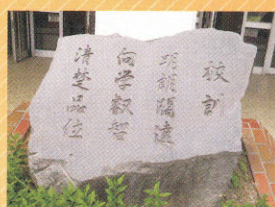 校訓
明朗闊達
向学叡智
清楚品位